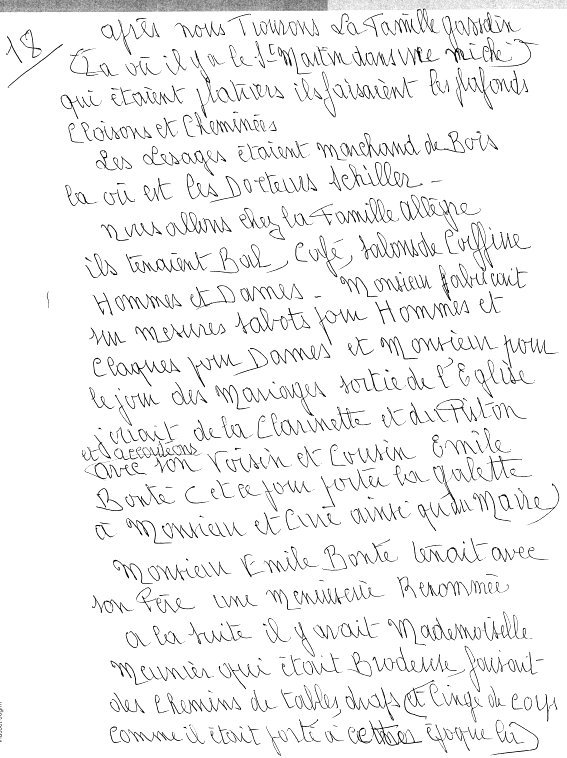 18
après nous Trouvons La Famille Gasselin
(La où il ya le St Martin dans une niche)
qui étaient platriers ils faisaient les plafonds
Cloisons et Cheminées
Les Lesages étaient marchand de Bois
la où est les Docteurs Schiller -
nous allons chez la Famille allègre
ils tenaient Bal, Café, Salons de Coiffure
Hommes et Dames - Monsieur fabriquait
sur mesures sabots pour Hommes et
Claques pour Dames et Monsieur pour
le jour des Mariages sortie de l'Eglise
jouait de la Clarinette et du Piston
et accordéons
avec son Voisin et Cousin Emile
Bonté (et ce jour portée la galette
à Monsieur et Curé ainsi qu'au Maire)
Monsieur Emile Bonté tenait avec
son Père une menuiserie Renommée
a la suite il y avait Mademoiselle
Meunier qui était Brodeuse, faisant
des Chemins de tables, draps (et Linge de corps
comme il était porté à cette époque là)